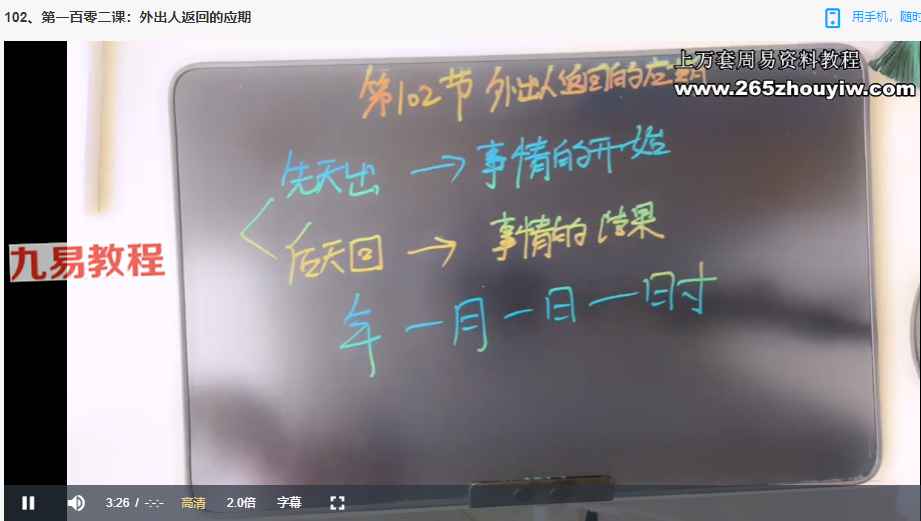 102、第一百零二课：外出人返回的应期
用手机，随时
上万套周易资料教程
www.265zhouyiw.com
第102节 外出人返回的应期
先天出 → 事情的开始
后天回 → 事情的结果
九易教程
年一月一日一时
3:26 / -:-:- 高清 2.0倍 字幕